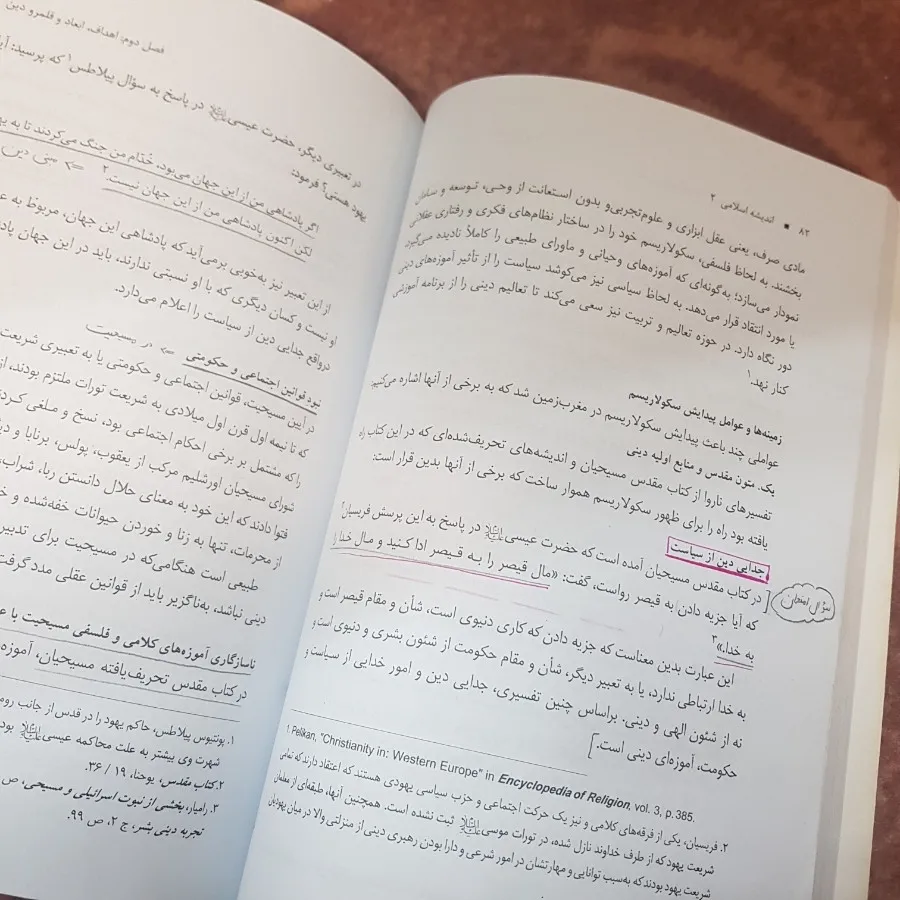 ۸۲ ■ اندیشه اسلامی ۲
مادی صرف، یعنی عقل ابزاری و علوم‌تجربی‌و بدون استعانت از وحی، توسعه و سامان
بخشند. به لحاظ فلسفی، سکولاریسم خود را در ساختار نظام‌های فکری و رفتاری عقلانی
نمودار می‌سازد؛ به‌گونه‌ای که آموزه‌های وحیانی و ماورای طبیعی را کاملاً نادیده می‌گیرد
یا مورد انتقاد قرار می‌دهد. به لحاظ سیاسی نیز می‌کوشد سیاست را از تأثیر آموزه‌های دینی
دور نگاه دارد. در حوزه تعالیم و تربیت نیز سعی می‌کند تا تعالیم دینی را از برنامه آموزشی
کنار نهد.۱
زمینه‌ها و عوامل پیدایش سکولاریسم
عواملی چند باعث پیدایش سکولاریسم در مغرب‌زمین شد که به برخی از آنها اشاره می‌کنیم:
یک. متون مقدس و منابع اولیه دینی
تفسیرهای ناروا از کتاب مقدس مسیحیان و اندیشه‌های تحریف‌شده‌ای که در این کتاب راه
یافته بود راه را برای ظهور سکولاریسم هموار ساخت که برخی از آنها بدین قرار است:
جدایی دین از سیاست
سؤال امتحان
[در کتاب مقدس مسیحیان آمده است که حضرت عیسی‌ﷺ در پاسخ به این پرسش فریسیان۲
که آیا جزیه دادن به قیصر رواست، گفت: «مال قیصر را به قیصر ادا کنید و مال خدا را
به خدا.»۳
این عبارت بدین معناست که جزیه دادن که کاری دنیوی است، شأن و مقام قیصر است و
به خدا ارتباطی ندارد، یا به تعبیر دیگر، شأن و مقام حکومت از شئون بشری و دنیوی است و
نه از شئون الهی و دینی. براساس چنین تفسیری، جدایی دین و امور خدایی از سیاست و
حکومت، آموزه‌ای دینی است.]
1. Pelikan, "Christianity in: Western Europe" in Encyclopedia of Religion, vol. 3, p. 385.
۲. فریسیان، یکی از فرقه‌های کلامی و نیز یک حرکت اجتماعی و حزب سیاسی یهودی هستند که اعتقاد دارند که تمامی
شریعت یهود که از طرف خداوند نازل شده، در تورات موسی ثبت نشده است. همچنین آنها، طبقه‌ای از معلمان
شریعت یهود بودند که به‌سبب توانایی و مهارتشان در امور شرعی و دارا بودن رهبری دینی از منزلتی والا در میان یهودیان
فصل دوم: اهداف، ابعاد و قلمرو دین
در تعبیری دیگر، حضرت عیسی در پاسخ به سؤال پیلاطس۱ که پرسید: آیا
یهود هستی؟ فرمود:
اگر پادشاهی من از این جهان می‌بود، خدّام من جنگ می‌کردند تا به یهو
لکن اکنون پادشاهی من از این جهان نیست.۲
از این تعبیر نیز به‌خوبی برمی‌آید که پادشاهی این جهان، مربوط به عی
او نیست و کسان دیگری که با او نسبتی ندارند، باید در این جهان پاد
درواقع جدایی دین از سیاست را اعلام می‌دارد.
نبود قوانین اجتماعی و حکومتی => در مسیحیت
در آیین مسیحیت، قوانین اجتماعی و حکومتی یا به تعبیری شریعت
که تا نیمه اول قرن اول میلادی به شریعت تورات ملتزم بودند، از
را که مشتمل بر برخی احکام اجتماعی بود، نسخ و ملغی کرد
شورای مسیحیان اورشلیم مرکب از یعقوب، پولس، برنابا و دی
فتوا دادند که این خود به معنای حلال دانستن ربا، شراب،
از محرمات، تنها به زنا و خوردن حیوانات خفه‌شده و خ
طبیعی است هنگامی‌که در مسیحیت برای تدبیر
دینی نباشد، به‌ناگزیر باید از قوانین عقلی مدد گرفت
ناسازگاری آموزه‌های کلامی و فلسفی مسیحیت با ع
در کتاب مقدس تحریف‌یافته مسیحیان، آموزه
۱. پونتیوس پیلاطس، حاکم یهود را در قدس از جانب روم
شهرت وی بیشتر به علت محاکمه عیسی بود
۲. کتاب مقدس، یوحنا، ۱۹ / ۳۶.
۳. رامیار، بخشی از نبوت اسرائیلی و مسیحی، ص
تجربه دینی بشر، ج ۲، ص ۹۹.